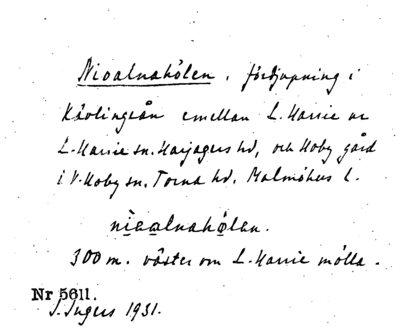 Nioalnahölen, fördjupning i
Kävlingeån emellan L. Harrie nr
L. Harrie sn. Harjagers hd, och Hoby gård
i V. Hoby sn. Torna hd. Malmöhus l.
nìealnahǿlen.
300 m. väster om L. Harrie mölla.
Nr 5611.
I. Ingers 1931.